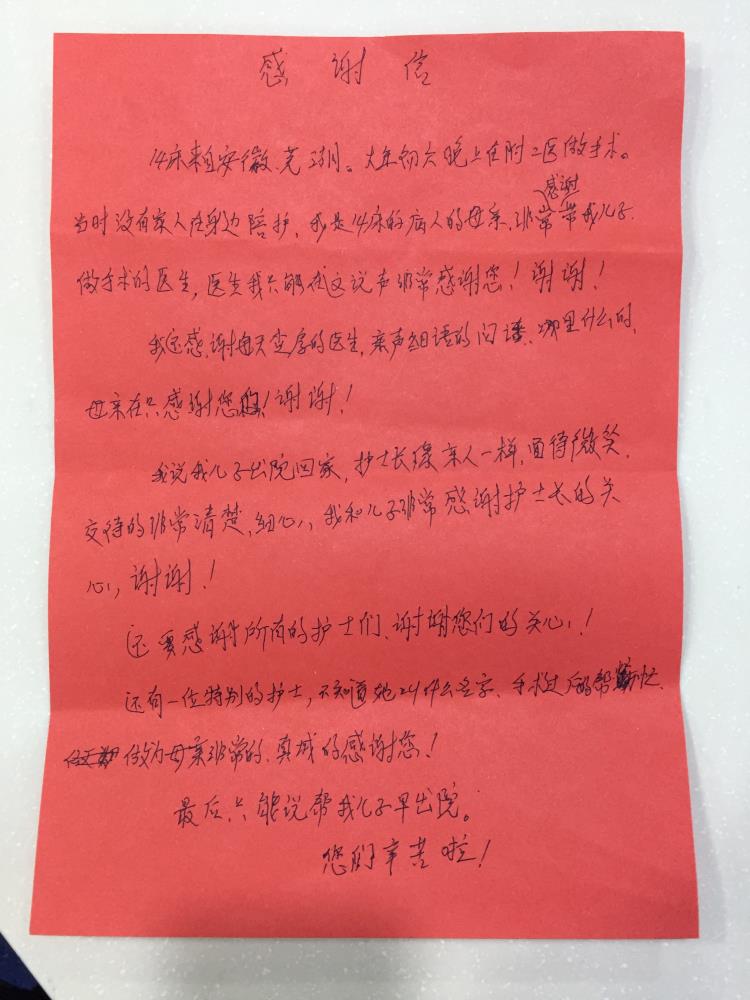 感谢信
14床来自安徽芜湖。大年初六晚上在附二医做手术。
当时没有家人在身边陪护,我是14床的病人的母亲,非常感谢带我儿子
做手术的医生,医生我只能在这说声非常感谢您!谢谢!
我还感谢每天查房的医生,亲声细语的问话、哪里什么的,
母亲在只感谢您!谢谢!
我说我儿子出院回家,护士长像亲人一样,面待微笑,
交待的非常清楚、细心,我和儿子非常感谢护士长的关
心,谢谢!
还要感谢所有的护士们、谢谢您们的关心!
还有一位特别的护士,不知道她叫什么名字、手术过后的帮忙
做为母亲非常的、真诚的感谢您!
最后,只能说帮我儿子早出院。
您们辛苦啦!